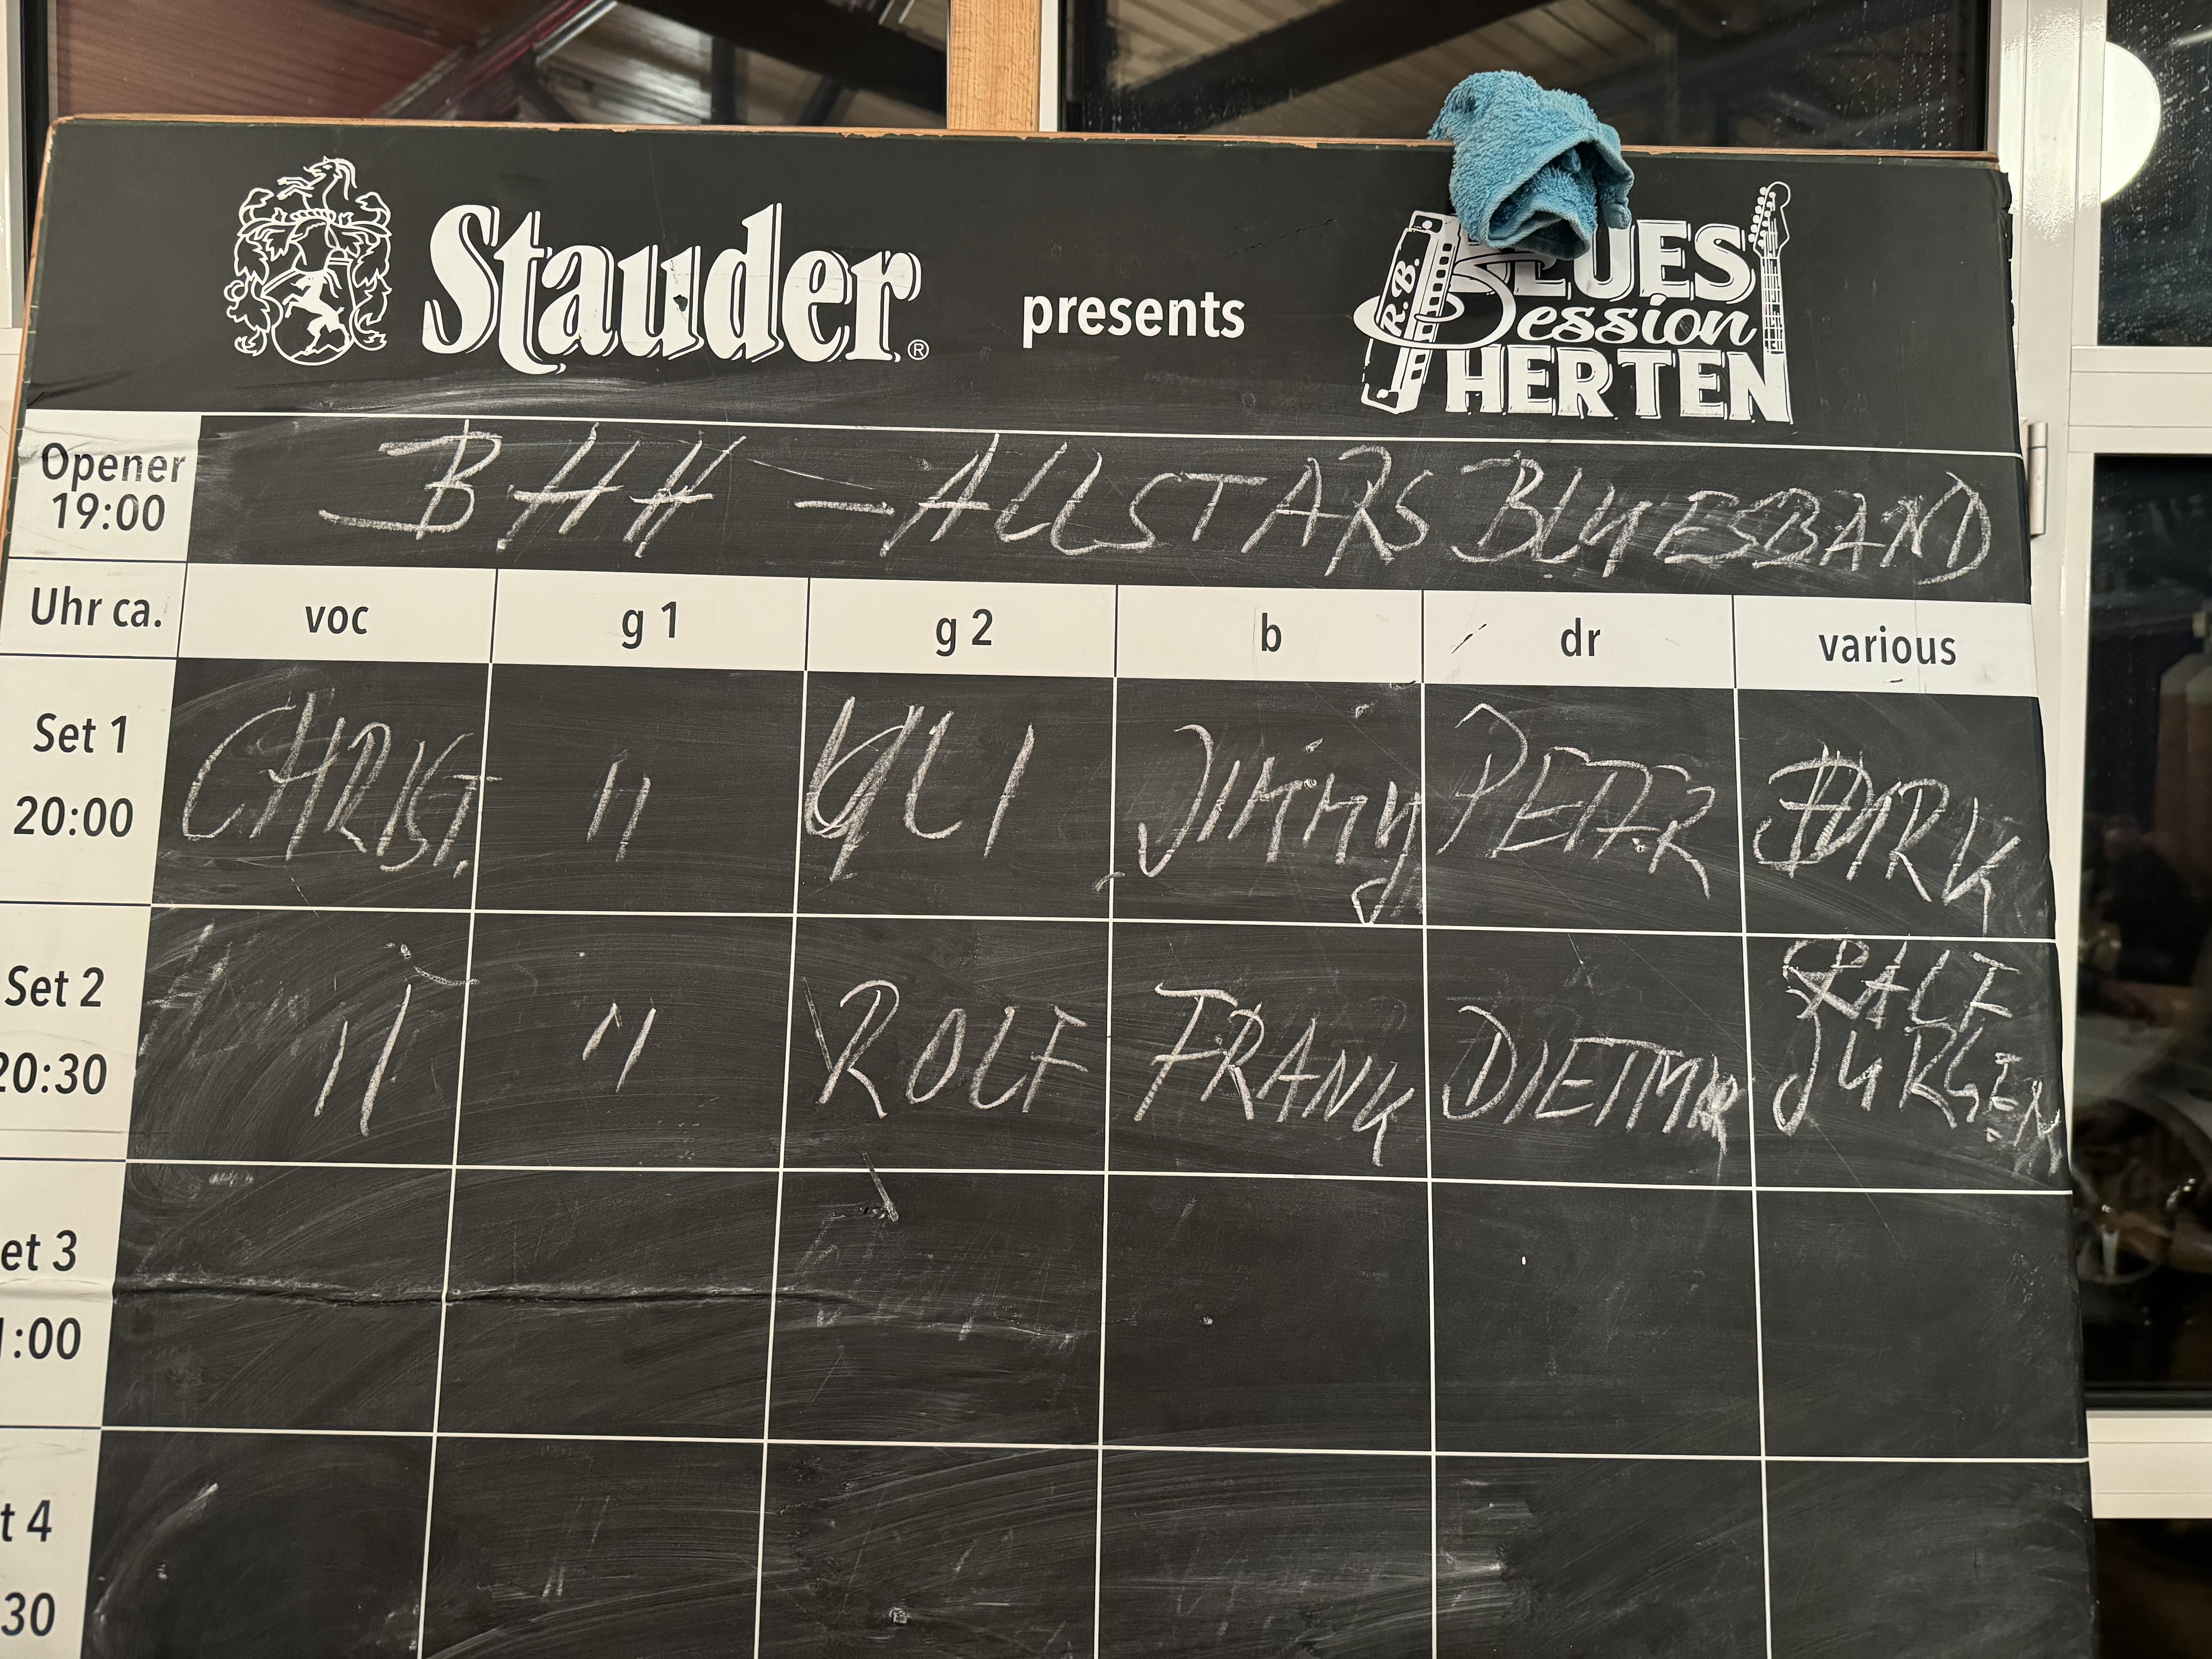 Stauder®
presents
R.B.
BLUES
Session
HERTEN
Opener
19:00
BHH - ALLSTARS BLUESBAND
Uhr ca. voc g 1 g 2 b dr various
Set 1
20:00
CHRIST. " ULI Jimmy PETER DIRK
Set 2
20:30
" " ROLF FRANK DIETMAR RALF
JURGEN
et 3
1:00
t 4
30